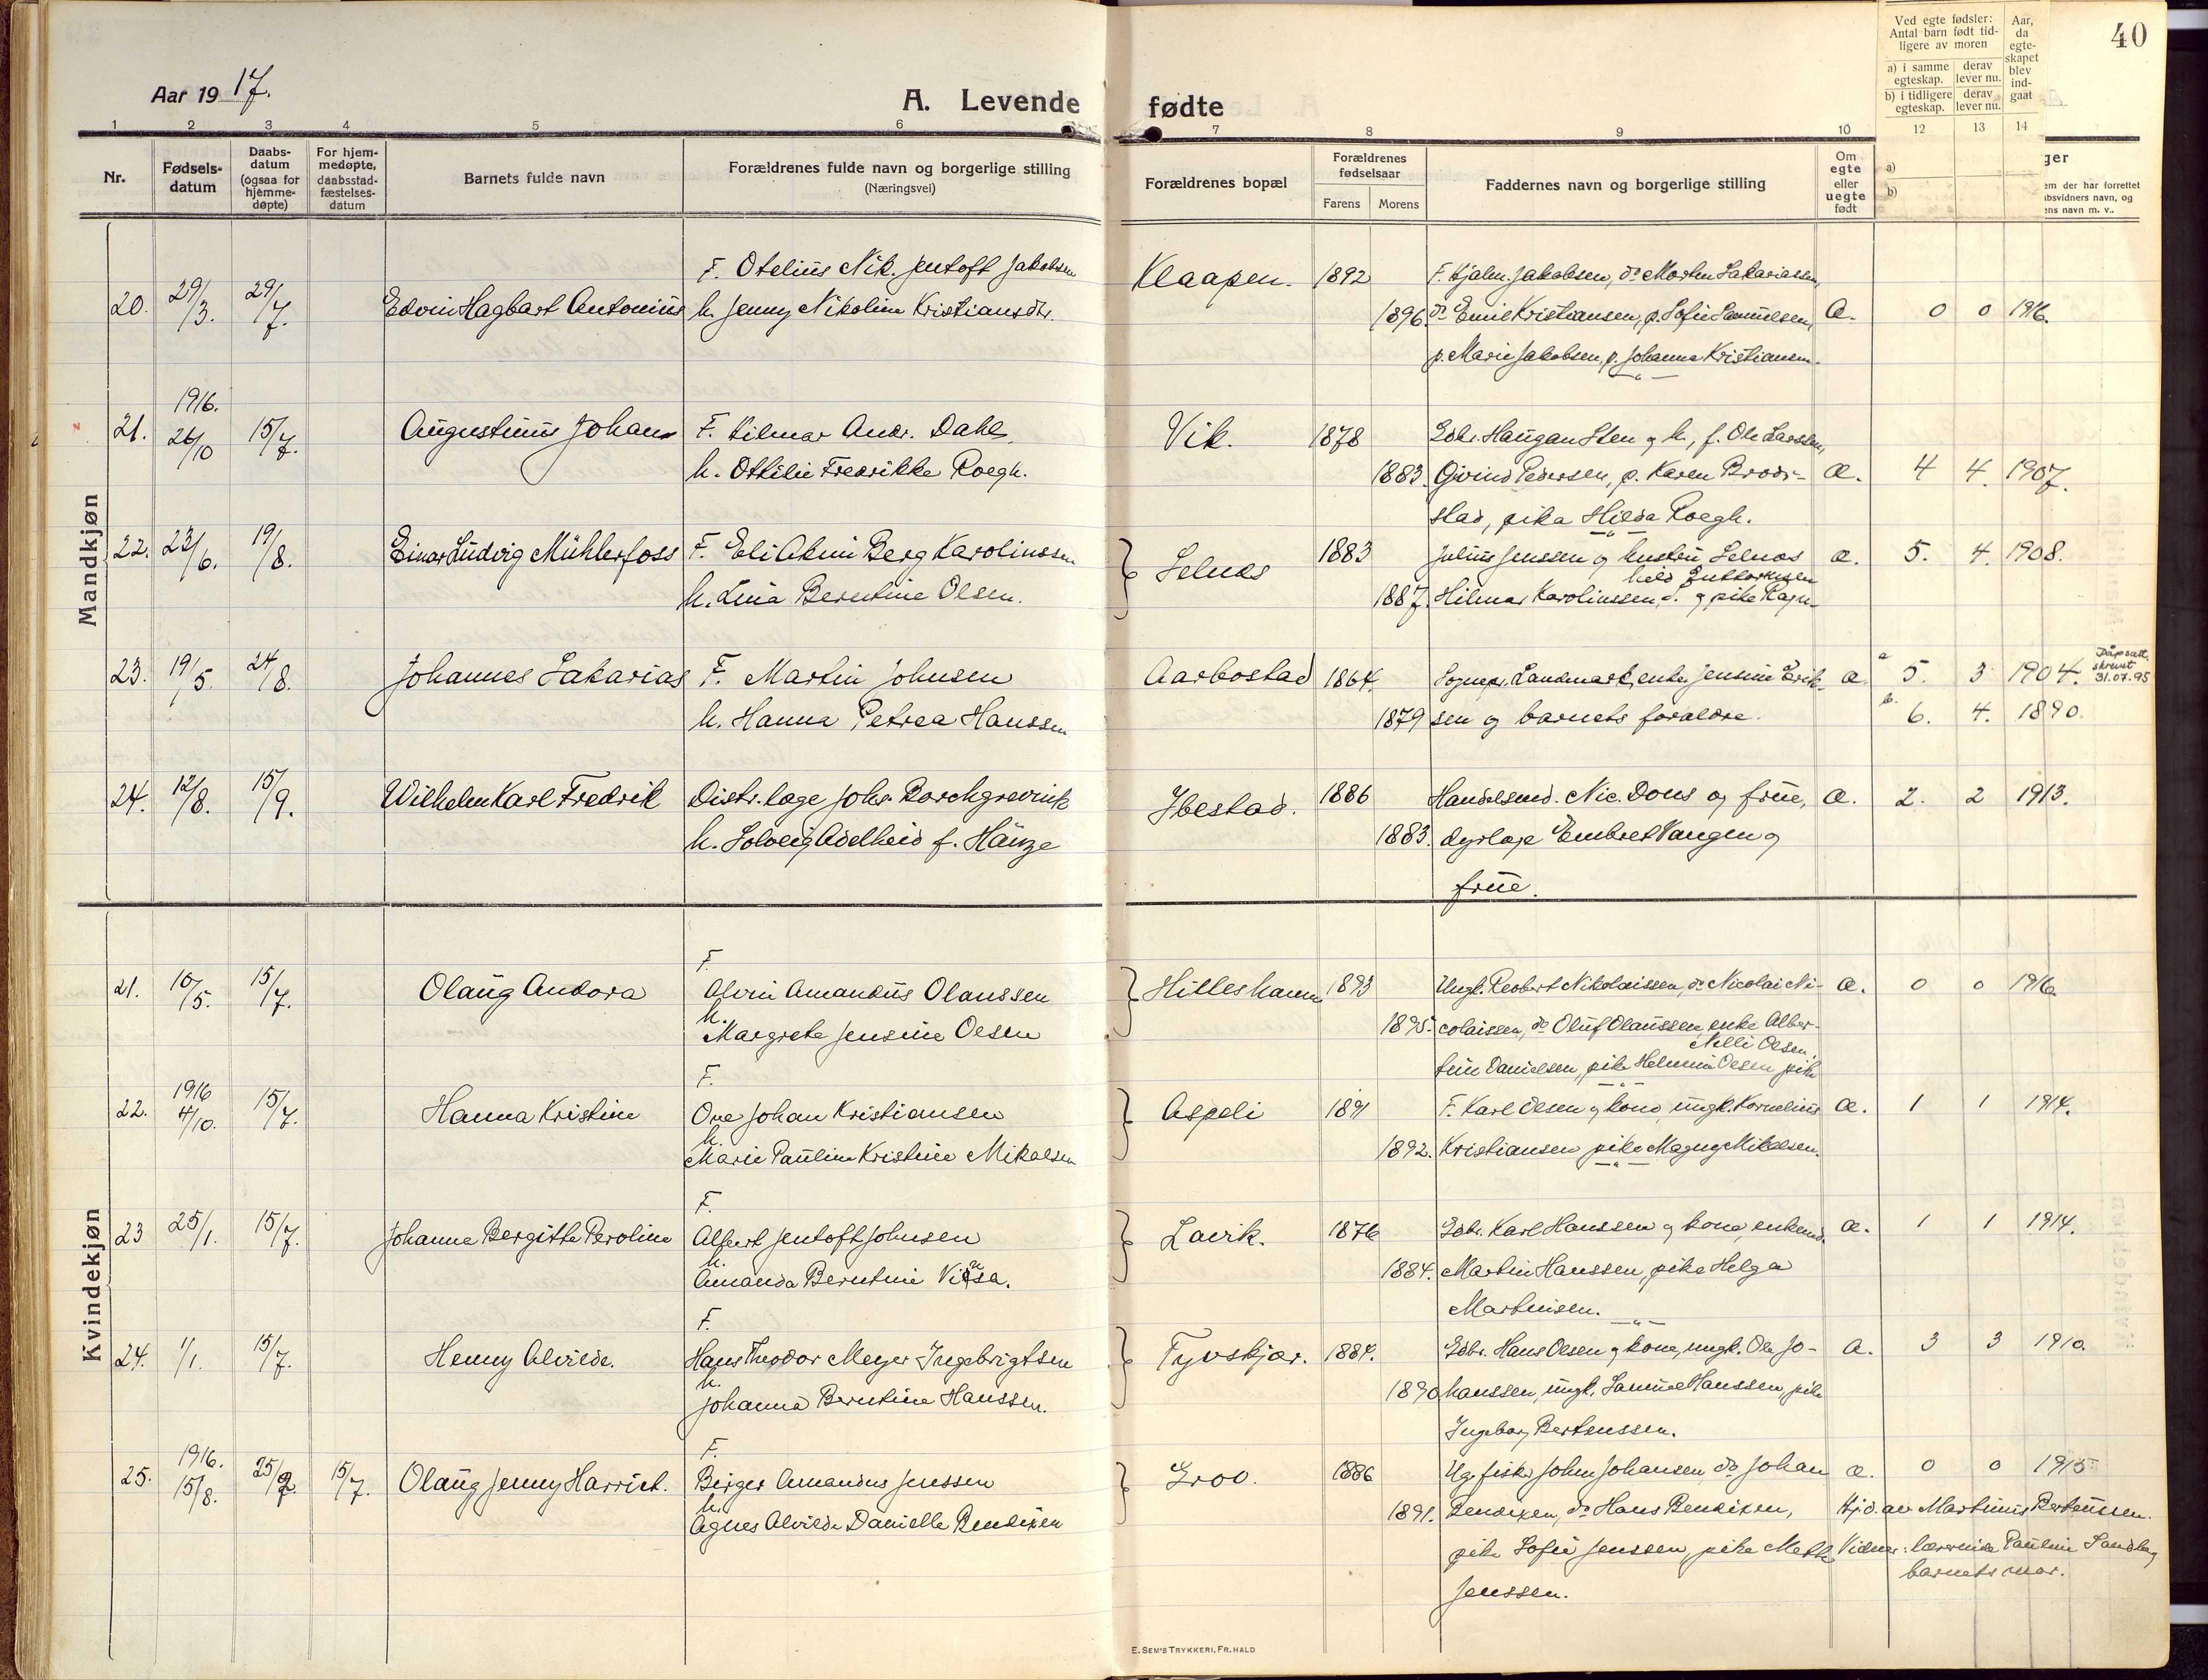 Aar 1917.
A. Levende fødte
40
Ved egte fødsler: Antal barn født tidligere av moren
a) i samme egteskap. derav lever nu.
b) i tidligere egteskap. derav lever nu.
Aar, da egteskapet blev indgaat
1 2 3 4 5 6 7 8 9 10 12 13 14
Nr.
Fødselsdatum
Daabsdatum (ogsaa for hjemmedøpte)
For hjemmedøpte, daabsstadfæstelsesdatum
Barnets fulde navn
Forældrenes fulde navn og borgerlige stilling
(Næringsvei)
Forældrenes bopæl
Forældrenes fødselsaar
Farens Morens
Faddernes navn og borgerlige stilling
Om egte eller uegte født
a)
b)
ger
em der har forrettet
bsvidners navn, og
ens navn m. v..
Mandkjøn
F. Otelius Nik. Jentoft Jakobsen Klaapen. 1892 F. Hjalm. Jakobsen, do Morten Sakariassen,
20. 29/3. 29/7. Edvin Hagbart Antonius h. Jenny Nikoline Kristiansdtr. 1896. do Emil Kristiansen, p. Sofie Samuelsen, Æ. 0 0 1916.
p. Marie Jakobsen, p. Johanna Kristiansen.
1916.
21. 26/10 15/7. Augustinus Johan F. Hilmar Andr. Dahl, Vik. 1878 Gdbr. Haugan Sten og h., f. Ole Larssen,
h. Ottilie Fredrikke Roegh. 1883. Øivind Pedersen, p. Karen Brods- æ. 4 4. 1907.
stad, pika Hilda Roegh.
22. 23/6. 19/8. Einar Ludvig Mühlerfoss F. Eli Almi Berg Karolinssen Selnæs 1883 Julius Jenssen og hustru Selnæs æ. 5. 4. 1908.
hild Guttormsen
h. Lina Berntine Olsen. 1887. Hilmar Karolinssen, d. og pike Ragn-
23. 19/5. 24/8. Johannes Sakarias F. Martin Johnsen Aarbostad 1864. Sognepr. Landmark, enke Jensine Erik- æ. a 5. 3 1904. Dåpsatt. skrevet 31.07.95
h. Hanna Petrea Hanssen 1879 sen og barnets forældre. b. 6. 4. 1890.
24. 12/8. 15/9. Wilhelm Karl Fredrik Distr. læge Johs. Borchgrevink Ibestad. 1886 Handelsmd. Nic. Dons og frue, æ. 2. 2 1913.
h. Solveig Adelheid f. Hänze 1883. dyrlæge Embret Vangen og
frue.
Kvindekjøn
F.
21. 10/5. 15/7. Olaug Andora Alvin Amandus Olaussen Hilleshamn 1893 Ungk. Robert Nikolaissen, do Nicolai Ni- æ. 0 0 1916.
h.
Margrete Jensine Olsen 1895. colaissen, do Oluf Olaussen, enke Alber-
Nelli Olsen.
tine Danielsen, pike Helmine Olsen, pike
F.
1916
22. 4/10. 15/7. Hanna Kristine Ove Johan Kristiansen Aspeli 1891 F. Karl Olsen og kone, ungk. Kornelius æ. 1 1 1914.
h.
Marie Pauline Kristine Mikalsen 1892. Kristiansen, pike Magny Mikalsen.
F.
23 25/1. 15/7. Johanne Bergitte Peroline Alfert Jentoft Johnsen Lavik. 1876 Gdbr. Karl Hanssen og kone, enkemd. æ. 1 1 1914.
h.
Amanda Berntine 1884. Martin Hanssen, pike Helga
Martinsen.
F.
24. 1/1. 15/7. Henny Alvilde. Hans Theodor Meyer Ingebrigtsen Tyvskjær. 1884. Gdbr. Hans Olsen og kone, ungk. Ole Jo- æ. 3 3 1910.
h.
Johanna Berntine Hanssen. 1890 hanssen, ungk. Samuel Hanssen, pike
Ingeborg Berteussen.
1916. F.
25. 15/8. 25/2. 15/7. Olaug Jenny Harriet. Birger Amandus Jenssen Groo. 1886 Ug. fisk. John Johansen, do Johan æ. 0 0 1915
h.
Agnes Alvilde Danielle Bendixen 1891. Bendixen, do Hans Bendixen, Hjd. av Martinus Berteussen.
pike Sofie Jenssen, pike Mette Vidner: lærerinde Pauline Sandberg
Jenssen. barnets mor.
E. SEM'S TRYKKERI, FR. HALD